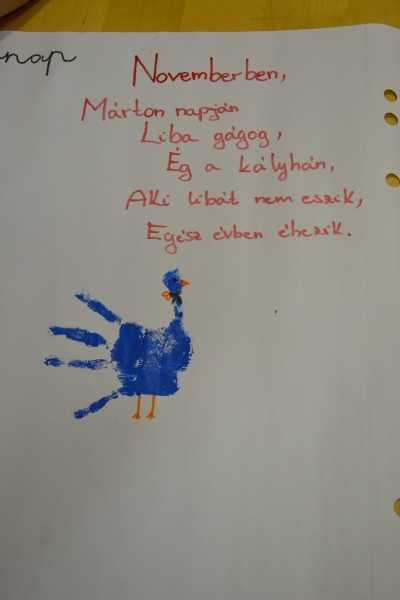 nap
Novemberben,
Márton napján
Liba gágog,
Ég a kályhán,
Aki libát nem eszik,
Egész évben éhezik.